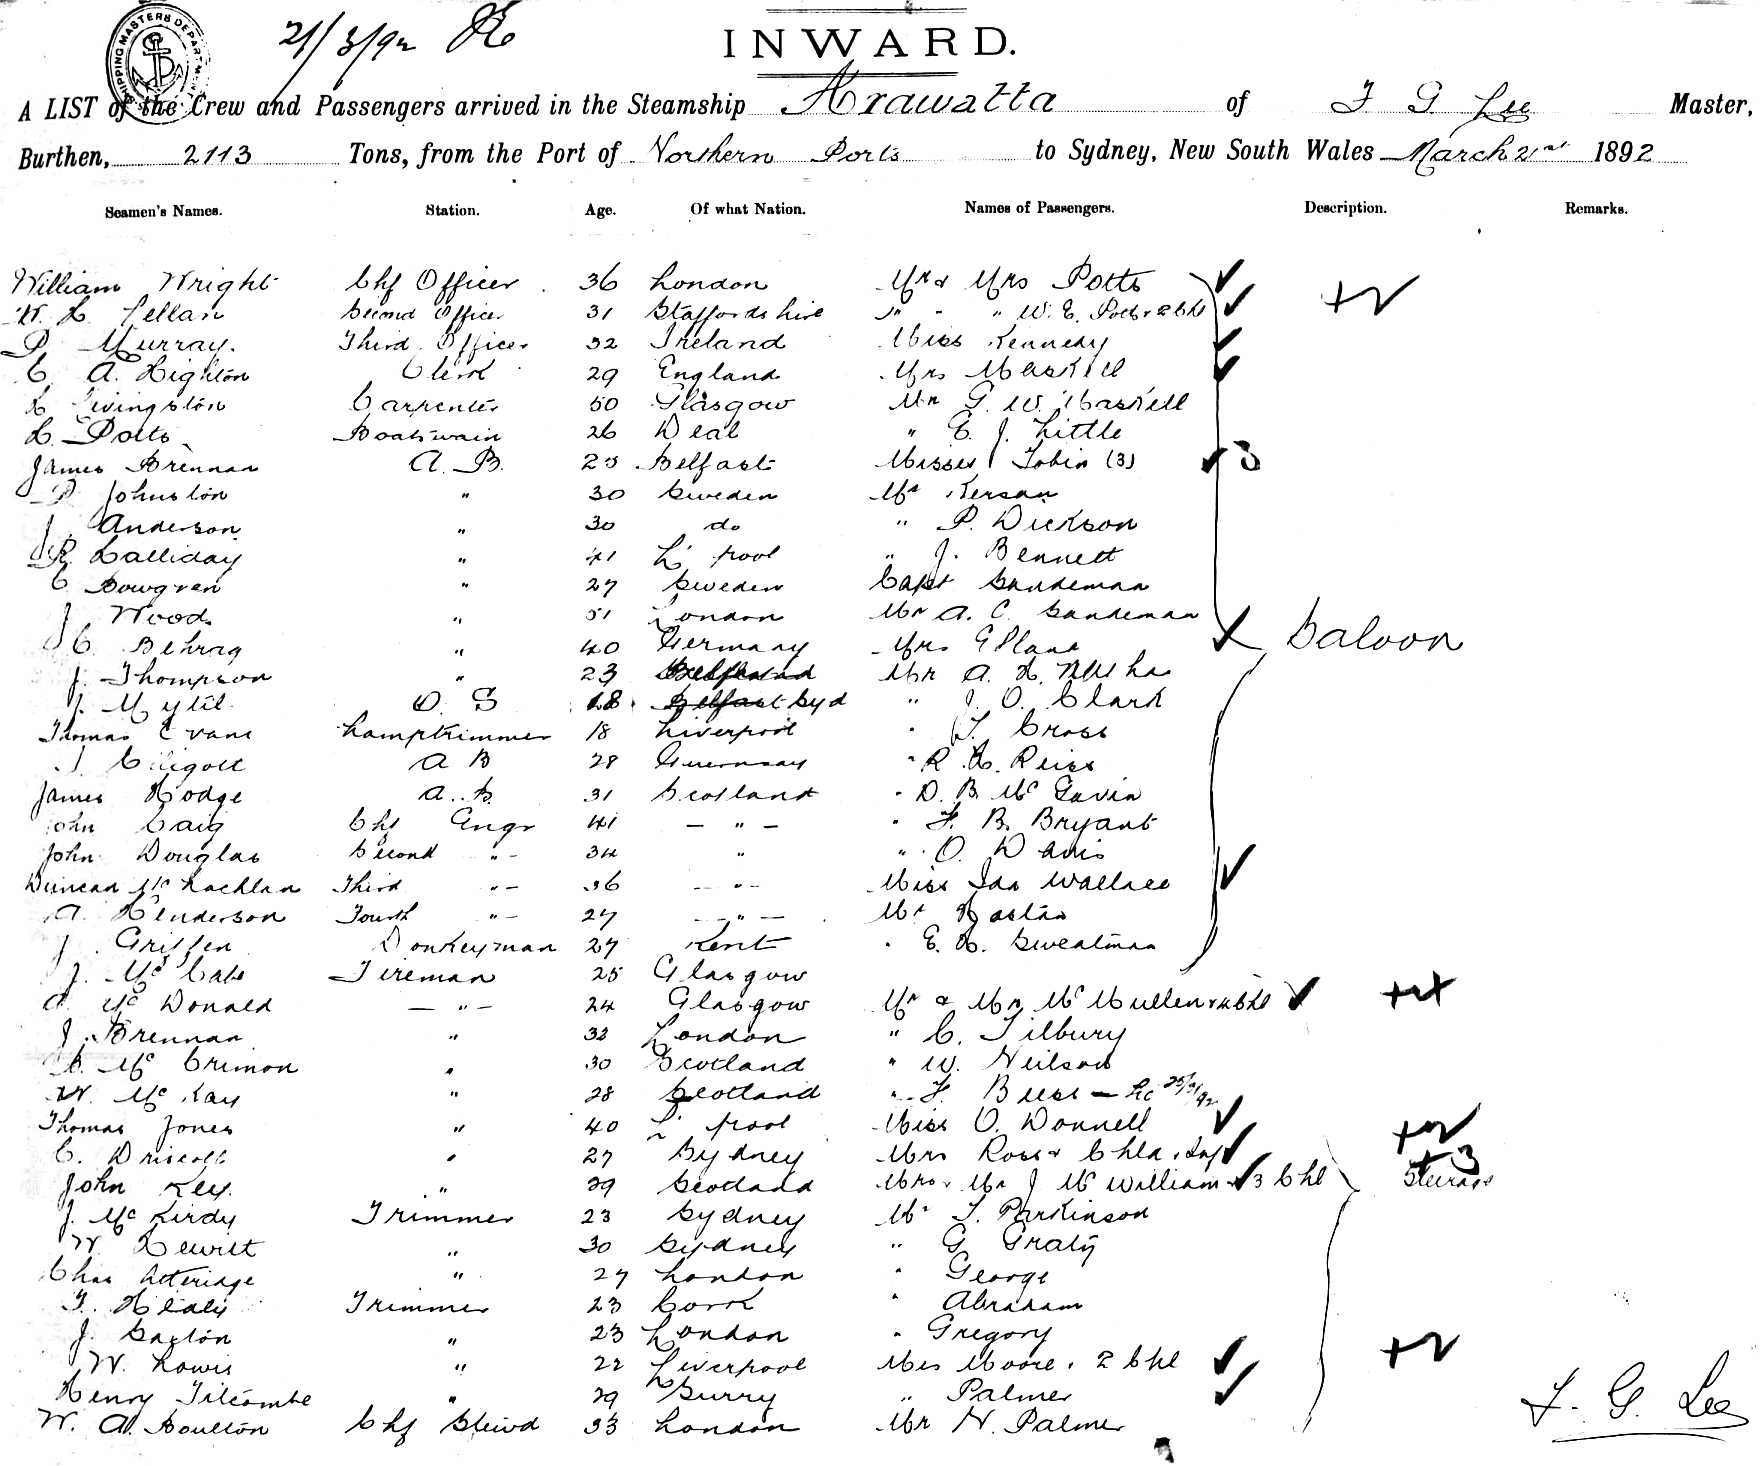 SHIPPING MASTERS DEPART
21/3/92
INWARD.
A LIST of the Crew and Passengers arrived in the Steamship Arawatta of F G Lee Master,
Burthen, 2113 Tons, from the Port of Northern Ports to Sydney, New South Wales March 21st 1892
Seamen's Names. Station. Age. Of what Nation. Names of Passengers. Description. Remarks.
William Wright Chf Officer 36 London Mr & Mrs Potts
Second Officer 31 Staffordshire " " " W. E. Potts & 2 Chl
P Murray. Third Officer 32 Ireland Miss Kennedy
C A. Highton Clerk 29 England Mrs Maskell
H Livingston Carpenter 50 Glasgow Mr G. W. Maskell
H. Potts Boatswain 26 Deal " E. J. Little
James Brennan A. B. 25 Belfast Misses Tobin (3) 3
P Johnston " 30 Sweden Mr Kersan
J Anderson " 30 do " P. Dickson
Halliday " 41 L'pool " J. Bennett
C Bowgren " 27 Sweden Capt Sandeman
J Wood " 51 London Mr A. C. Sandeman
C. Behrag " 40 Germany Mrs Saloon
J. Thompson " 23 Mr A. H.
J. O. S 18 Belfast Syd " J. O. Clark
Thomas Evans Lamptrimmer 18 Liverpool " T. Cross
A B 28 Guernsey " R. H. Reiss
James Hodge A. B. 31 Scotland " D. B. Mc Gavin
John Caig Chf Engr 41 — " — " F. B. Bryant
John Douglas Second " - 34 " " O. Davis
Duncan Mc Lachlan Third " - 36 — " - Miss Ida Wallace
A. Henderson Fourth " - 27 — " — Mr
J. Griffen Donkeyman 27 Kent " E. H. Sweatman
J. Mc Cabe Fireman 25 Glasgow
A. Mc Donald — " — 24 Glasgow Mr & Mrs Mc Mullen & 4 Chl
J. Brennan " 32 London " C. Tilbury
Mc Crimon " 30 Scotland " W. Neilson
W. Mc Kay " 28 Scotland " F.
Thomas Jones " 40 L'pool Miss O. Donnell
C. Driscoll " 27 Sydney Mrs Ross & Chld & Inf
John Key. " 29 Scotland Mrs & Mr J Mc William & 3 Chl 3 Steerage
J. Mc Kirdy Trimmer 23 Sydney Mr T. Parkinson
W. Hewitt " 30 Sydney " G Graty
Chas Atteridge " 27 London " George
T. Healy Trimmer 23 Cork " Abraham
J. Saxton " 23 London " Gregory
W. Lowis " 22 Liverpool Mrs Moore & 2 Chl
Henry Tilcombe " 29 Surry " Palmer
W. A. Boulton Chf Stewd 33 London Mr N. Palmer
F. G. Lee